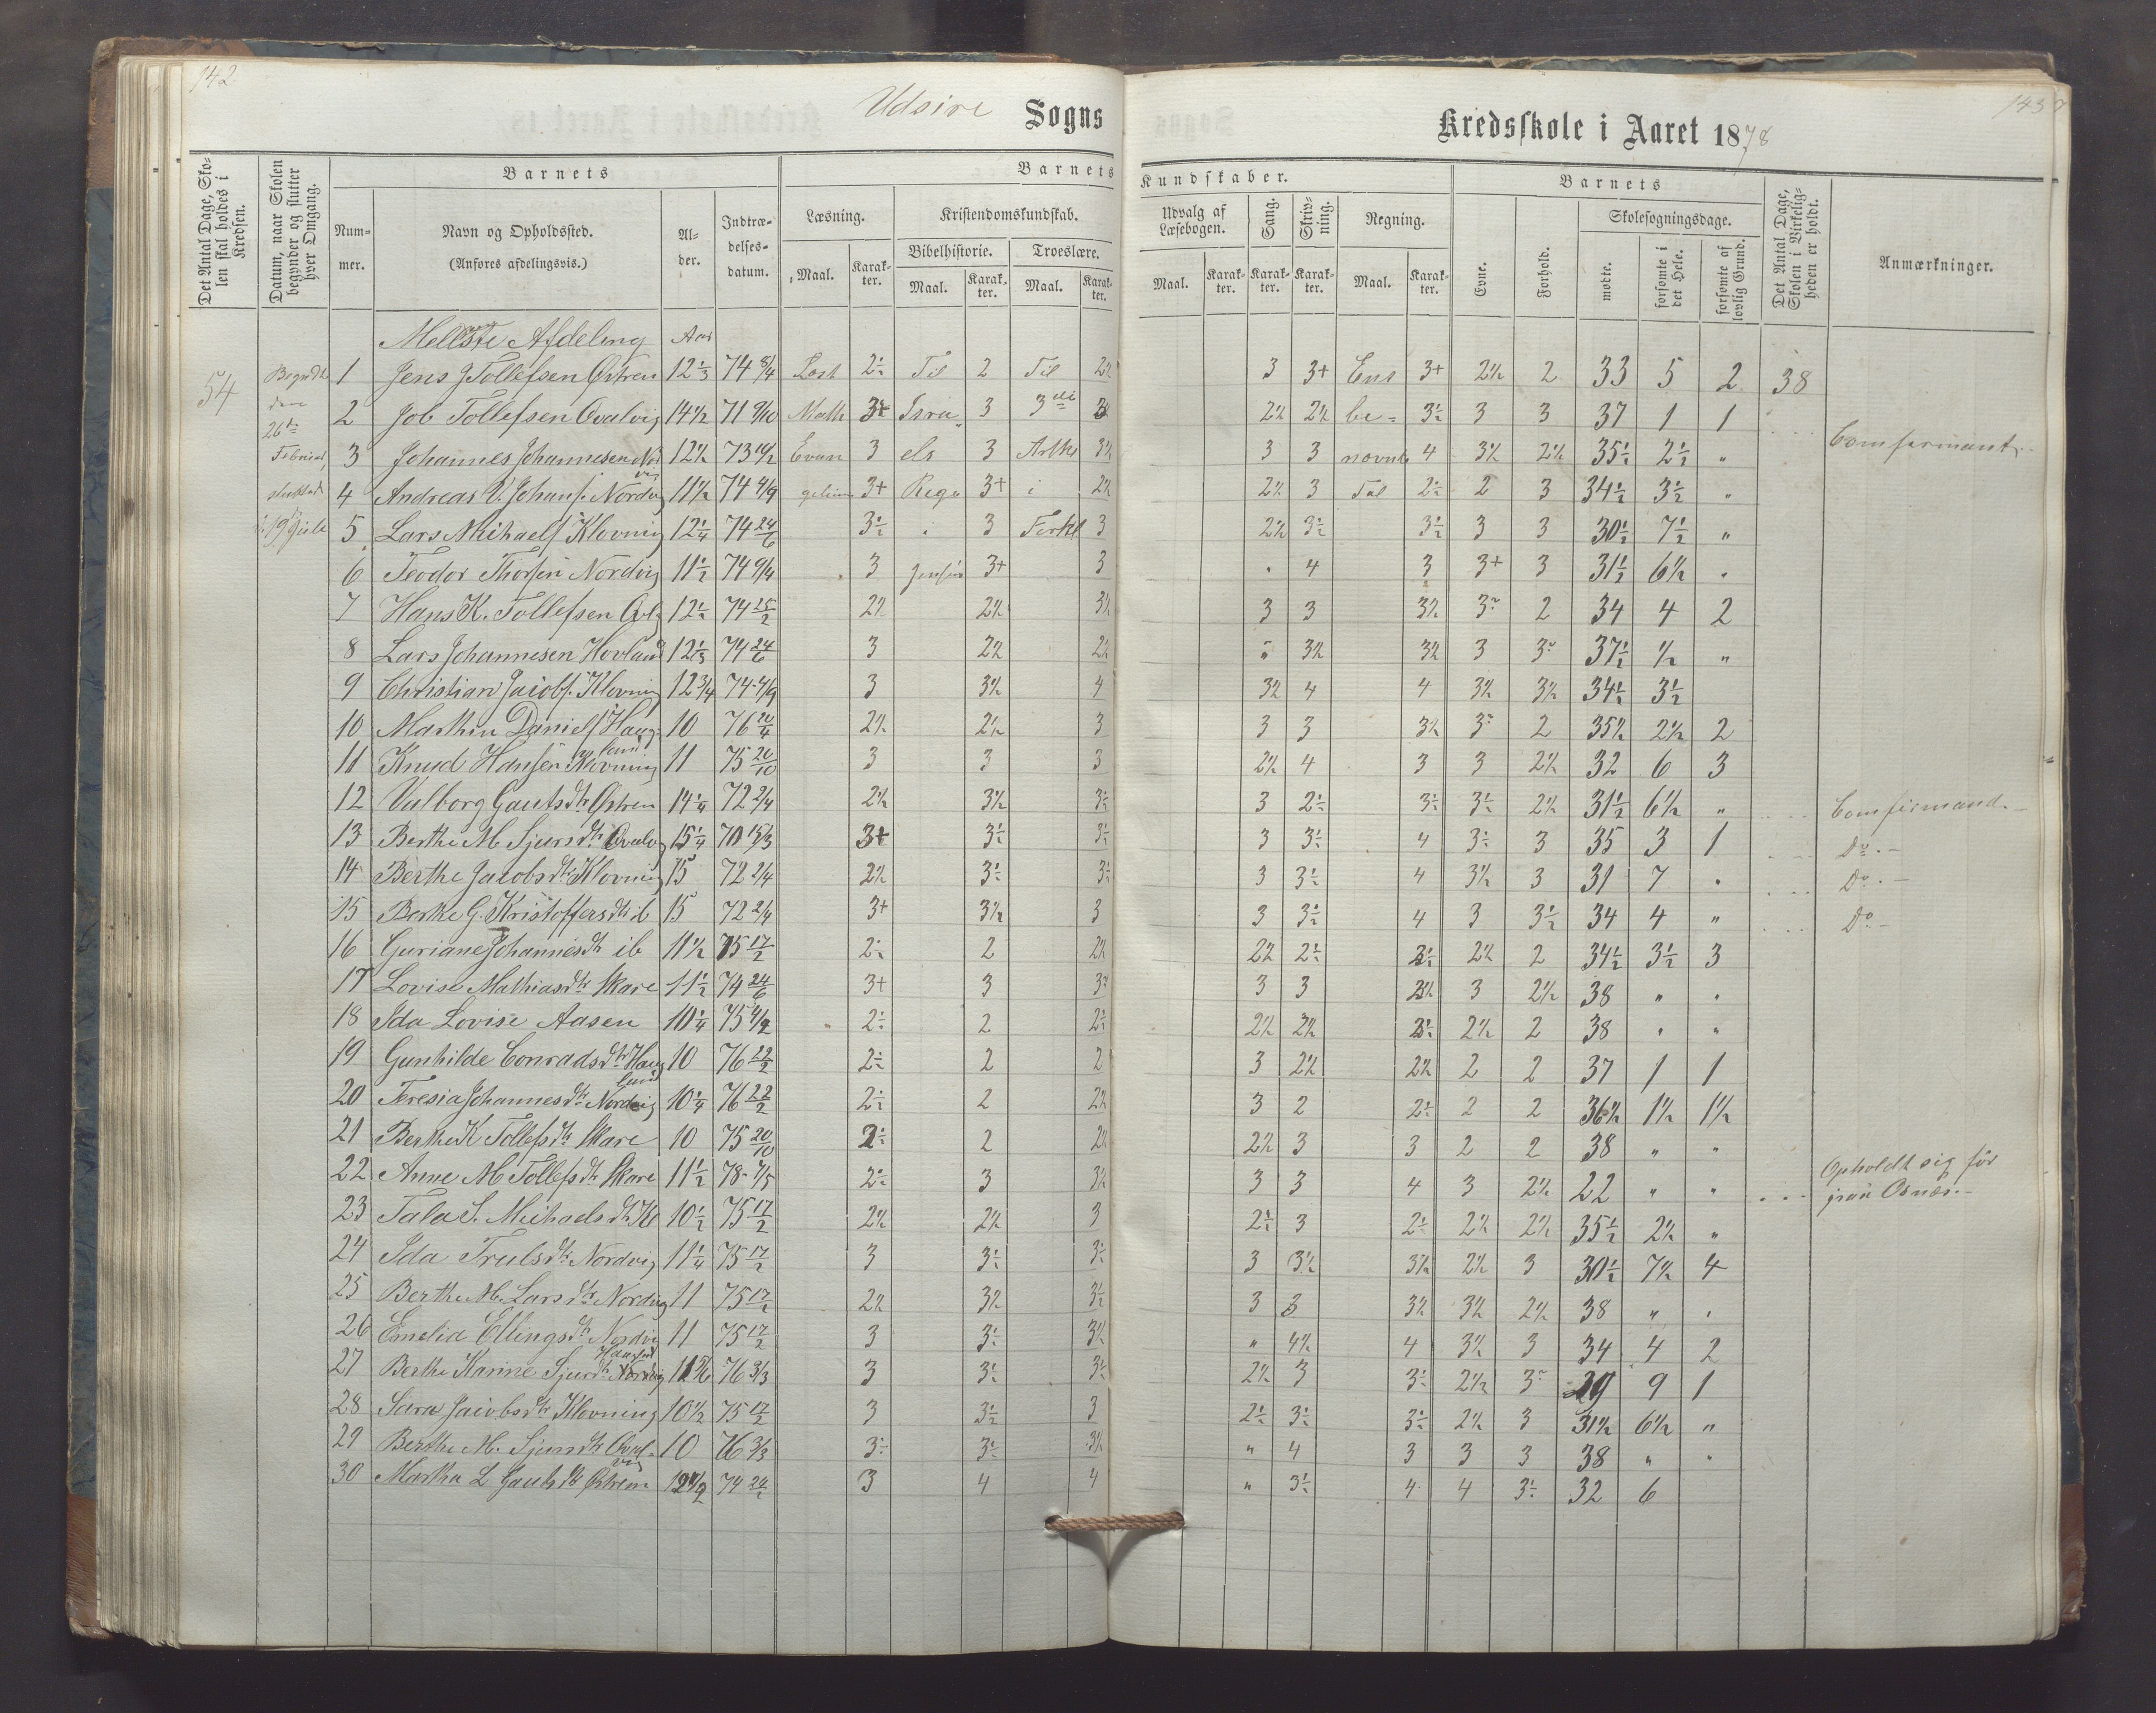 142
Udsire Sogns
Kredsskole i Aaret 1878
143
Det Antal Dage, Skolen skal holdes i Kredsen.
Datum, naar Skolen begynder og slutter hver Omgang.
Barnets
Nummer.
Navn og Opholdssted.
(Anføres afdelingsvis.)
Alder.
Indtrædelsesdatum.
Barnets
Læsning.
Maal.
Karakter.
Kristendomskundskab.
Bibelhistorie.
Maal.
Karakter.
Troeslære.
Maal.
Karakter.
Kundskaber.
Udvalg af Læsebogen.
Maal.
Karakter.
Sang.
Karakter.
Skrivning.
Karakter.
Regning.
Maal.
Karakter.
Barnets
Evne.
Forhold.
Skolesøgningsdage.
mødte.
forsømte i det Hele.
forsømte af lovlig Grund.
Det Antal Dage, Skolen i Virkeligheden er holdt.
Anmærkninger.
Afdeling Aar
54
1 Jens J Tollefsen Østren 12 1/3 74 8/4 2 2 Til 3 3+ 3+ 2½ 2 33 5 2 38
2 Job Tollefsen Ovalvig 14½ 71 9/10 3 3 2½ 2½ be- 3½ 3 3 37 1 1
3 Johannes Johannesen 12½ Evan 3 els 3 3½ 3 3 4 3½ 2½ 35½ 2½ " Comfermant
4 Andreas Johans. Nordvig 11½ 74 4/9 3+ 3+ i 2½ 2½ 3 Tal 2½ 2 3 34½ 3½ "
5 Lars Michaels Klovning 12¼ 74 24/6 3½ 3 3 2½ 3½ 3½ 3 3 30½ 7½ "
6 Teodor Thorsen Nordvig 11½ 74 9/4 3 3+ 3 4 3 3+ 3 31½ 6½ "
7 Hans K. Tollefsen 12½ 74 25/2 2½ 2½ 3½ 3 3 3½ 3 2 34 4 2
8 Lars Johannesen Hovland 12 1/3 74 24/6 3 2½ 2½ " 3½ 3½ 3 3 37½ ½ "
9 Christian Jacobs. Klovning 12¾ 74 4/9 3 3½ 4 3½ 4 4 3½ 3½ 34½ 3½
10 Marthin Daniels Haugland 10 76 20/4 2½ 2½ 3 3 3 3½ 3 2 35½ 2½ 2
11 Knud Hansen Klovning 11 75 20/10 3 3 3 2½ 4 3 3 2½ 32 6 3
12 Valborg Gautsdtr Østren 14¼ 72 2/4 2½ 3½ 3½ 3 2½ 3½ 3½ 2½ 31½ 6½ " Comfirmand.
13 Berthe M. Sjursdtr Ovalvg 15¼ 70 15/3 3+ 3½ 3½ 3 3½ 4 3½ 3 35 3 1 Do.
14 Berthe Jacobsdtr Klovning 15 72 2/4 2½ 3½ 3½ 3 3½ 4 3½ 3 31 7 " Do.
15 G. Kristoffersdtr ib 15 72 2/4 3+ 3½ 3 3 3½ 4 3 3½ 34 4 " Do
16 Guriane Johannesdtr ib 11½ 75 17/2 2½ 2 2½ 2½ 2½ 2½ 2 34½ 3½ 3
17 Lovise Mathiasdtr Skare 11½ 74 24/6 3+ 3 3 3 3 3 2½ 38 " "
18 Ida Lovise Aasen 10¼ 2½ 2 2½ 2½ 2½ 2½ 2 38 " "
19 Gunhilde Conradsdtr Haugland 10 76 22/2 2½ 2 2 3 2½ 2½ 2 2 37 1 1
20 Teresia Johannesdtr Nordvig 10¼ 76 22/2 2½ 2 2½ 3 2 2½ 2 2 36½ 1½ 1½
21 Berthe K Tollefsdtr Skare 10 75 20/10 2½ 2 2½ 2½ 3 3 2 2 38 " "
22 Anne M Tollefsdtr Skare 11½ 78 7/5 2½ 3 3½ 3 3 4 3 2½ 22 " " Opholdt sig för
23 Tala S. Michaelsdtr Kl 10½ 75 17/2 2½ 2½ 3 2½ 3 2½ 2½ 2½ 35½ 2½ "
24 Ida Trulsdtr Nordvig 11¼ 75 17/2 3 3½ 3½ 3 3½ 3½ 2½ 3 30½ 7½ 4
25 Berthe M. Larsdtr Nordvig 11 75 17/2 2½ 3½ 3½ 3 3 3½ 3½ 2½ 38 " "
26 Emelia Ellingsdtr Nordvi 11 75 17/2 3 3½ 3½ " 4½ 4 3½ 3 34 4 2
27 Berthe Karine Sjursdtr Haugland 76 3/3 3 3½ 3½ 2½ 3 3½ 2½ 3 29 9 1
28 Sara Jacobsdtr Klovning 10½ 75 17/2 3 3½ 3 2½ 3½ 3½ 2½ 3 31½ 6½ "
29 Berthe M. Sjursdtr Ovalvig 10 76 3/3 3½ 3½ 3½ " 4 3 3 3 38 " "
30 Martha L Gautsdtr Østrem 74 3 4 4 " 3½ 4 4 3½ 32 6